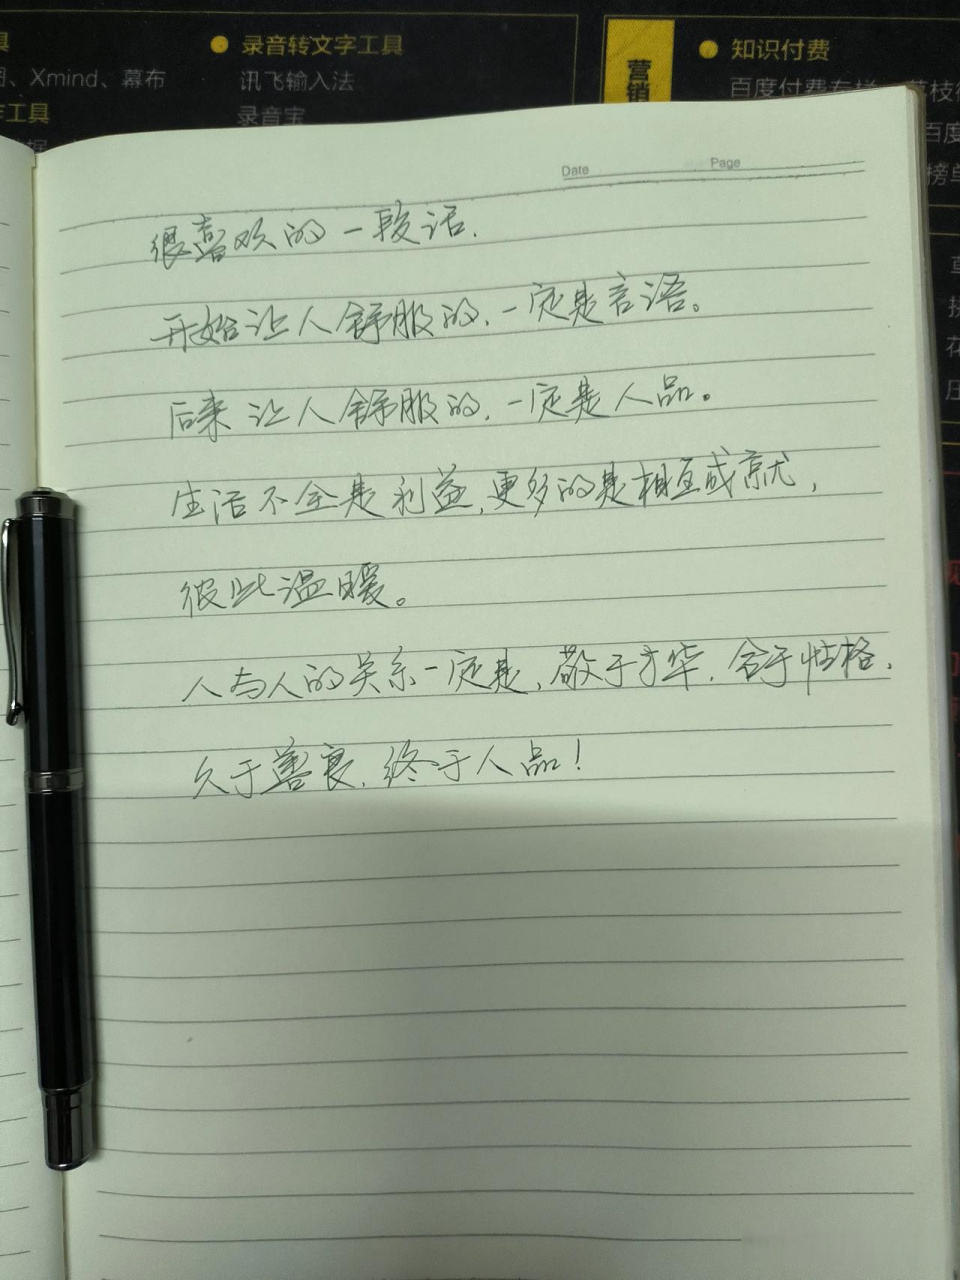 录音转文字工具
讯飞输入法
录音宝
、Xmind、幕布
工具
营销
知识付费
Date
Page
很喜欢的一段话.
开始让人舒服的、一定是言语。
后来让人舒服的、一定是人品。
生活不全是利益,更多的是相互成就,
彼此温暖。
人与人的关系一定是、敬于才华、合于性格、
久于善良、终于人品!